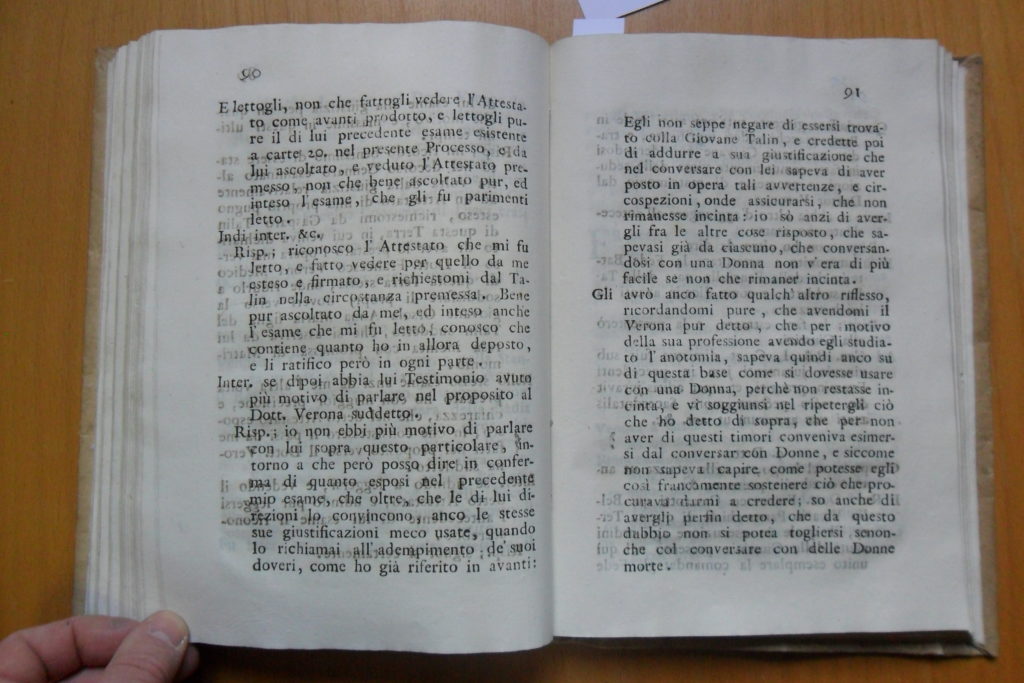 90
E lettogli, non che fattogli vedere l'Attesta-
to come avanti prodotto, e lettogli pu-
re il di lui precedente esame esistente
a carte 20. nel presente Processo, e da
lui ascoltato, e veduto l'Attestato pre-
messo, non che bene ascoltato pur, ed
inteso l'esame, che gli fu parimenti
letto.
Indi inter. &c.
Risp.; riconosco l'Attestato che mi fu
letto, e fatto vedere per quello da me
esteso e firmato, e richiestomi dal Ta-
lin nella circostanza premessa. Bene
pur ascoltato da me, ed inteso anche
l'esame che mi fu letto, conosco che
contiene quanto ho in allora deposto,
e li ratifico però in ogni parte.
Inter. se dipoi abbia lui Testimonio avuto
più motivo di parlare nel proposito al
Dott. Verona suddetto.
Risp.; io non ebbi più motivo di parlare
con lui sopra questo particolare, in-
torno a che però posso dire in confer-
ma di quanto esposi nel precedente
mio esame, che oltre, che le di lui di-
rezioni lo convincono, anco le stesse
sue giustificazioni meco usate, quando
lo richiamai all'adempimento de' suoi
doveri, come ho già riferito in avanti:
91
Egli non seppe negare di essersi trova-
to colla Giovane Talin, e credette poi
di addurre a sua giustificazione che
nel conversare con lei sapeva di aver
posto in opera tali avvertenze, e cir-
cospezioni, onde assicurarsi, che non
rimanesse incinta: io sò anzi di aver-
gli fra le altre cose risposto, che sa-
pevasi già da ciascuno, che conversan-
dosi con una Donna non v'era di più
facile se non che rimaner incinta.
Gli avrò anco fatto qualch'altro riflesso,
ricordandomi pure, che avendomi il
Verona pur detto, che per motivo
della sua professione avendo egli studia-
to l'anotomia, sapeva quindi anco su
di questa base come si dovesse usare
con una Donna, perchè non restasse in-
cinta, e vi soggiunsi nel ripetergli ciò
che ho detto di sopra, che per non
aver di questi timori conveniva esimer-
si dal conversar con Donne, e siccome
non sapeva capire come potesse egli
così francamente sostenere ciò che pro-
curava darmi a credere; so anche di
averglp perfin detto, che da questo
dubbio non si potea togliersi senon-
che col conversare con delle Donne
morte.